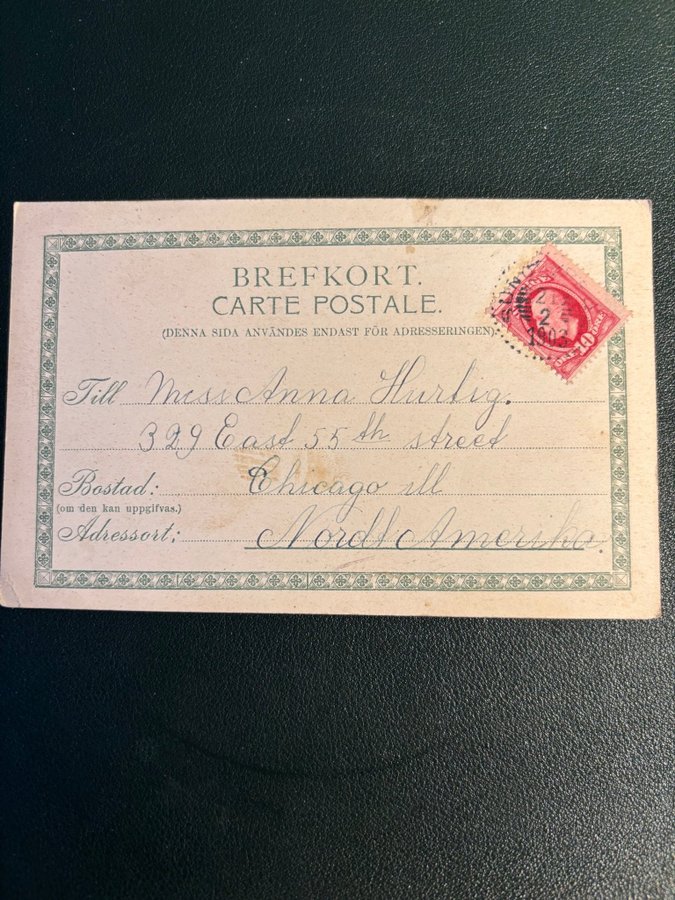 BREFKORT.
CARTE POSTALE.
(DENNA SIDA ANVÄNDES ENDAST FÖR ADRESSERINGEN).
Till Miss Anna Hurtig.
329 East 55th street
Bostad: Chicago ill
(om den kan uppgifvas.)
Adressort: Nordl Amerika.
2
1903
ÖRE 10 ÖRE